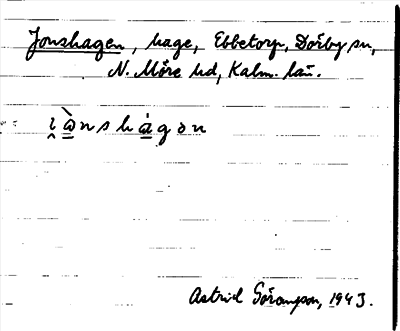 Jonshagen, hage, Ebbetorp, Dörby sn,
N. Möre hd, Kalm. län.
i̯ɷ̀nshàgɷn
Astrid Göransson, 1943.